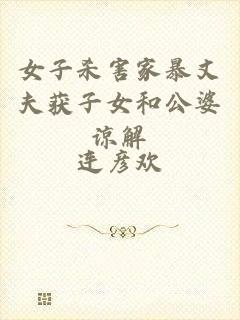 女子杀害家暴丈
夫获子女和公婆
谅解
连彦欢